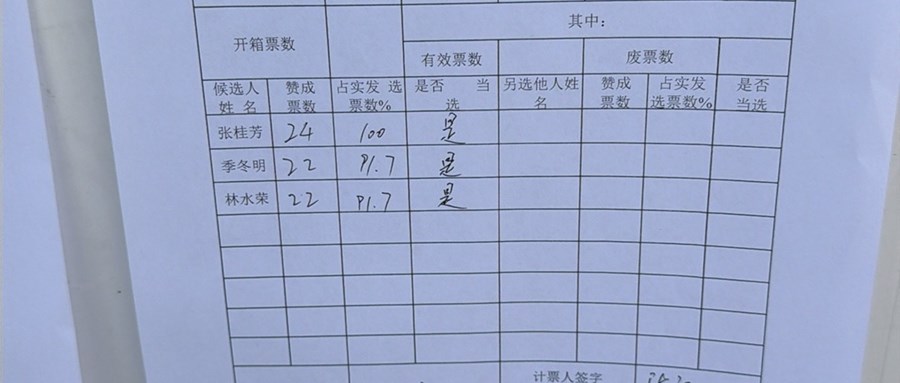 其中：
开箱票数
有效票数 废票数
候选人 赞成 占实发 选 是否 当 另选他人姓 赞成 占实发 是否
姓 名 票数 票数% 选 名 票数 选票数% 当选
张桂芳 24 100 是
季冬明 22 91.7 是
林水荣 22 91.7 是
计票人签字